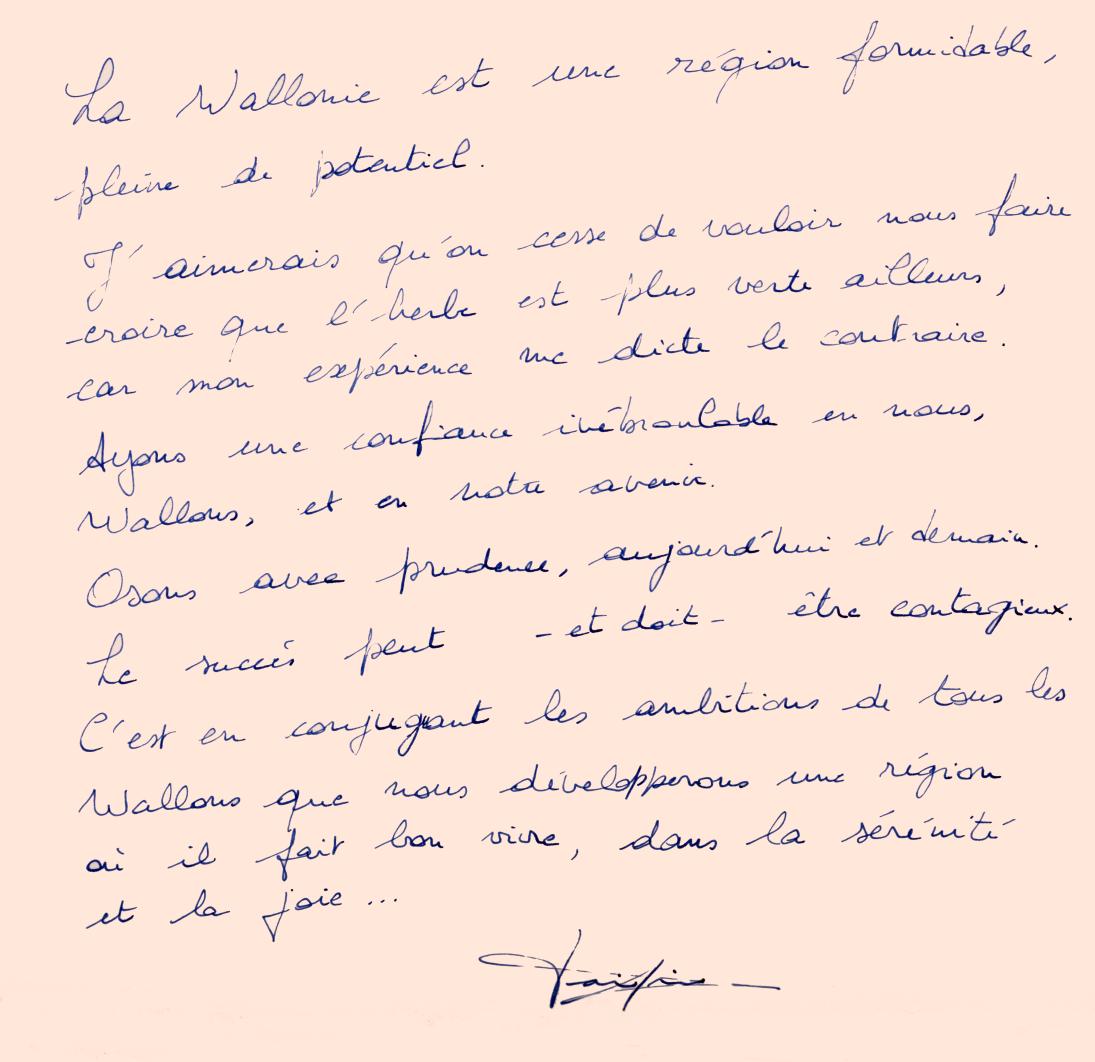 La Wallonie est une région formidable,
pleine de potentiel.
J'aimerais qu'on cesse de vouloir nous faire
croire que l'herbe est plus verte ailleurs,
car mon expérience me dicte le contraire.
Ayons une confiance inébranlable en nous,
Wallons, et en notre avenir.
Osons avec prudence, aujourd'hui et demain.
Le succès peut - et doit - être contagieux.
C'est en conjuguant les ambitions de tous les
Wallons que nous développerons une région
où il fait bon vivre, dans la sérénité
et la joie ...